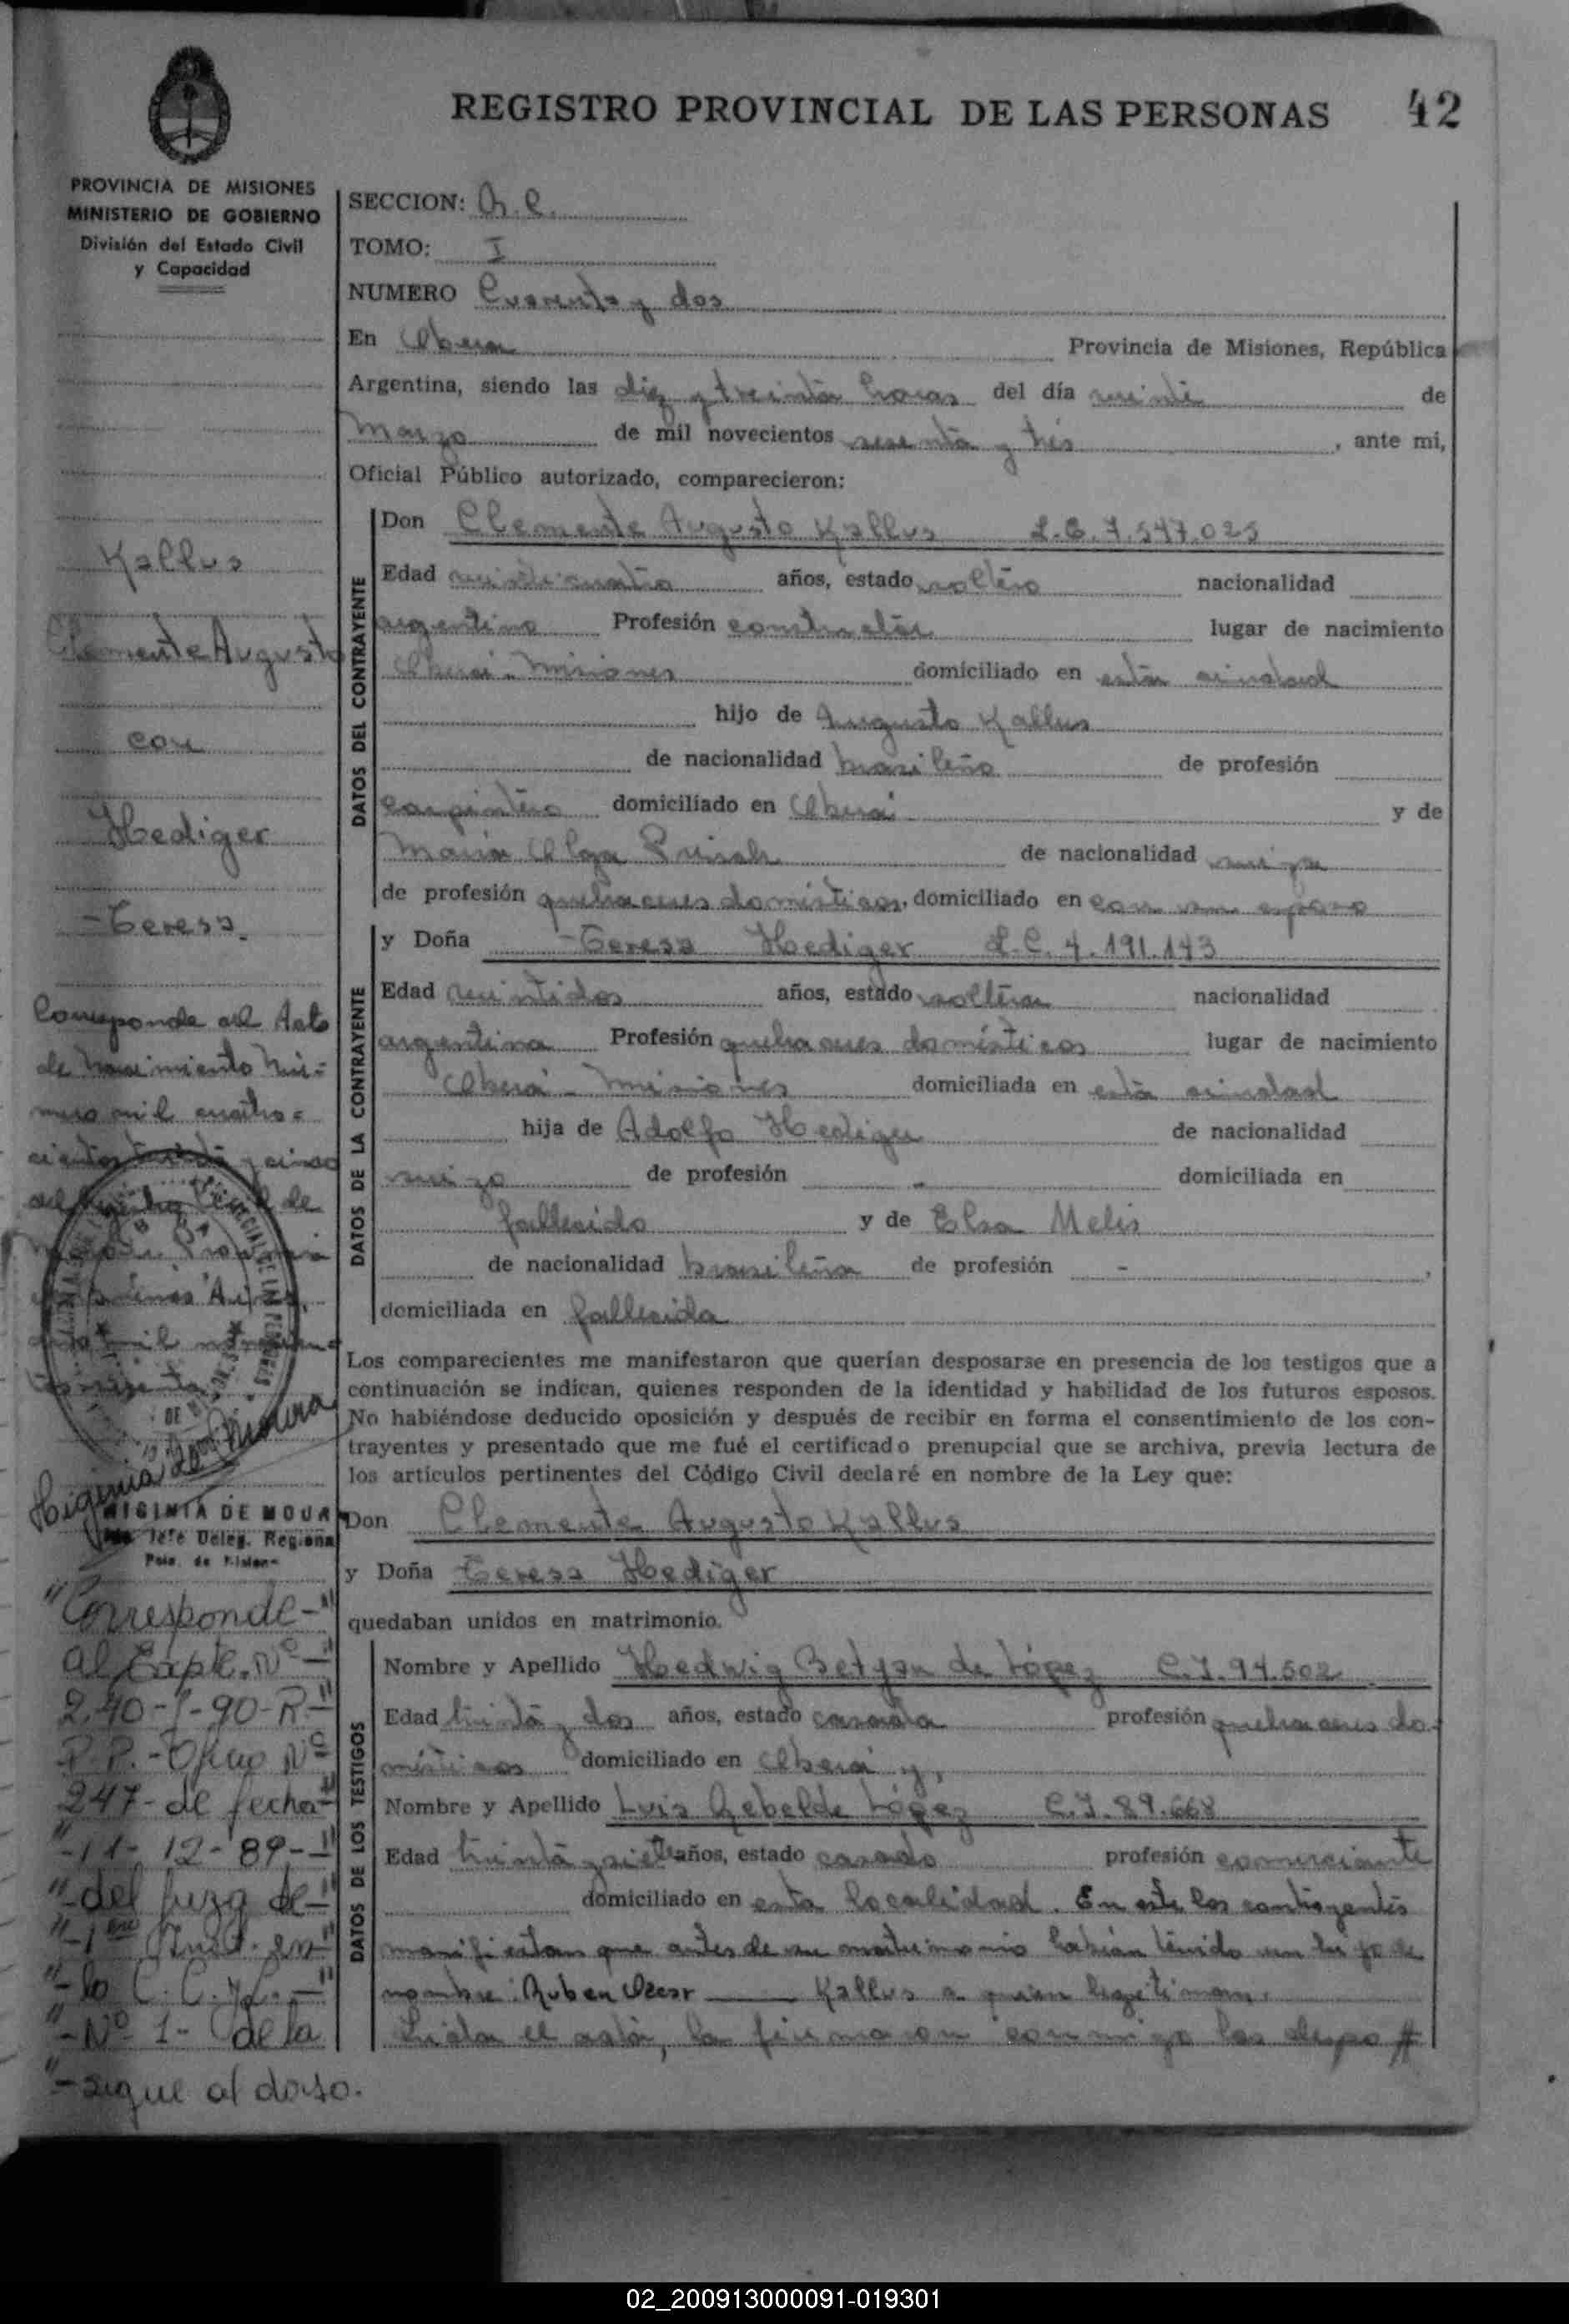 REGISTRO PROVINCIAL DE LAS PERSONAS 42
PROVINCIA DE MISIONES
MINISTERIO DE GOBIERNO
División del Estado Civil
y Capacidad
Kallus
Clemente Augusto
con
Hediger
Teresa.
Corresponde al Acta
de nacimiento nú=
mero mil cuatro=
cientos treinta y cinco
del Registro de
HIGINIA DE MOURA
Jefe Deleg. Regional
"Corresponde-"
al Expte. Nº-"
240- -90-R-"
Nº
247- de fecha-"
"-11-12-89-"
"-del Juzg de-"
"-1era Inst. en"
"-lo C. C. y L.-"
"-Nº 1- de la
"-sigue al dorso.
SECCION:
TOMO: I
NUMERO Cuarenta y dos
En Oberá Provincia de Misiones, República
Argentina, siendo las diez y treinta horas del día veinte de
Marzo de mil novecientos sesenta y tres, ante mi,
Oficial Público autorizado, comparecieron:
DATOS DEL CONTRAYENTE
Don Clemente Augusto Kallus L.E. 7.547.025
Edad veinticuatro años, estado soltero nacionalidad
argentino Profesión constructor lugar de nacimiento
Oberá - Misiones domiciliado en esta ciudad
hijo de Augusto Kallus
de nacionalidad brasileño de profesión
carpintero domiciliado en Oberá y de
María Olga de nacionalidad suiza
de profesión quehaceres domésticos, domiciliado en con su esposo
DATOS DE LA CONTRAYENTE
y Doña Teresa Hediger L.C. 4.191.143
Edad veintidos años, estado soltera nacionalidad
argentina Profesión quehaceres domésticos lugar de nacimiento
Oberá - Misiones domiciliada en esta ciudad
hija de Adolfo Hediger de nacionalidad
suizo de profesión - domiciliada en
fallecido y de Elsa Melis
de nacionalidad brasileña de profesión - ,
domiciliada en fallecida
Los comparecientes me manifestaron que querían desposarse en presencia de los testigos que a
continuación se indican, quienes responden de la identidad y habilidad de los futuros esposos.
No habiéndose deducido oposición y después de recibir en forma el consentimiento de los con-
trayentes y presentado que me fué el certificado prenupcial que se archiva, previa lectura de
los artículos pertinentes del Código Civil declaré en nombre de la Ley que:
Don Clemente Augusto Kallus
y Doña Teresa Hediger
quedaban unidos en matrimonio.
DATOS DE LOS TESTIGOS
Nombre y Apellido Hedwig Betyan de López C.I. 94.502
Edad treinta y dos años, estado casada profesión quehaceres do-
mésticos domiciliado en Oberá y,
Nombre y Apellido Luis Rebelde López C.I. 89.668
Edad treinta y siete años, estado casado profesión comerciante
domiciliado en esta localidad. En este los contrayentes
manifiestan que antes de su matrimonio habían tenido un hijo de
nombre: Ruben Oscar Kallus a quien legitiman.
Leida el acta, la firmaron conmigo los espo #
02_200913000091-019301